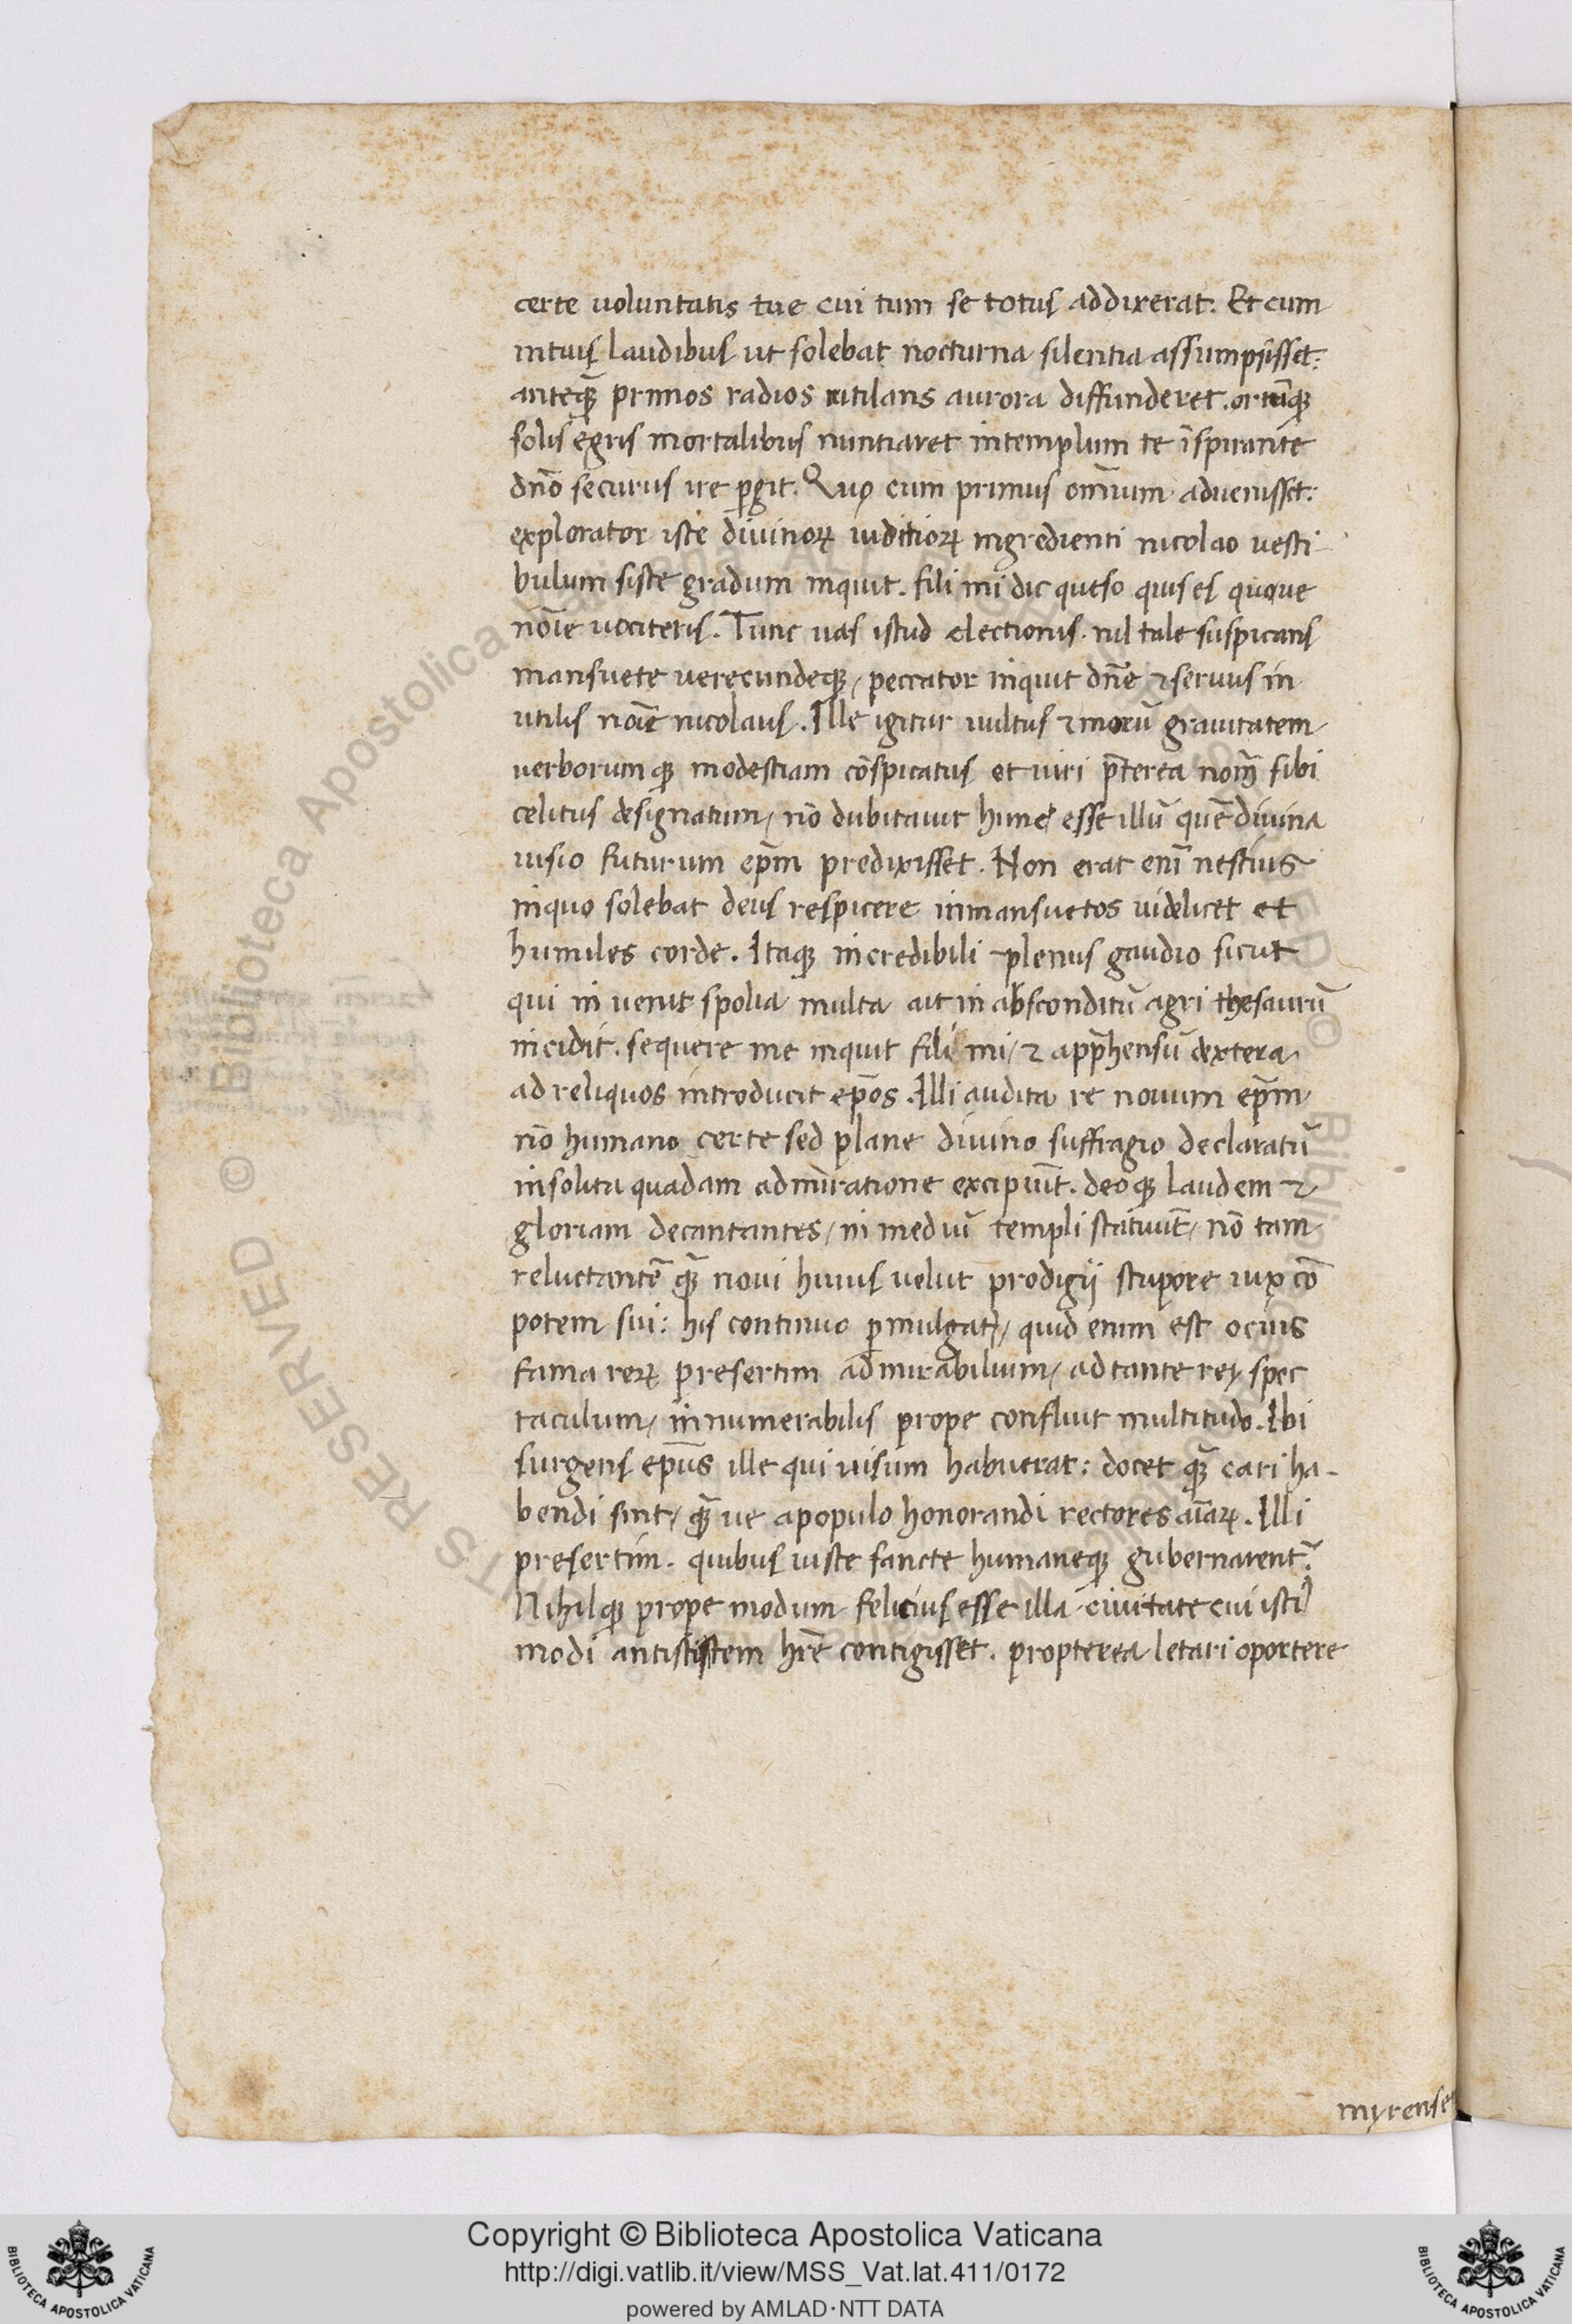 certe voluntatis tue cui tum se totus addixerat. Et cum
in tuis laudibus ut solebat nocturna silentia assumpsisset:
anteqꝫ̃ primos radios rutilans aurora diffunderet. ortũqꝫ
solis egris mortalibus nuntiaret in templum te ĩspirante
dño securus ire ꝑgit. Quo cum primus om̃ium advenisset:
explorator iste divinoꝝ iuditioꝝ ingredienti nicolao vesti
bulum siste gradum inquit. fili mi dic queso quis es quove
noĩe vociteris. Tunc vas istud electionis. nil tale suspicans
mansuete verecundeqꝫ, peccator inquit dñe ⁊ servus in
utilis noĩe nicolaus. Ille igitur vultus ⁊ morũ gravitatem
verborumqꝫ modestiam cõspicatus et viri p̃terea nom̃ sibi
celitus designatum, nõ dubitavit hunc esse illũ quẽ divina
visio futurum ep̃m predixisset. Non erat enĩ nescius
in quo solebat deus respicere in mansuetos videlicet et
humiles corde. Itaqꝫ incredibili plenus gaudio sicut
qui invenit spolia multa aut in absconditũ agri thesaurũ
incidit. sequere me inquit fili mi, ⁊ app̃hensũ dextera
ad reliquos introducit ep̃os. Illi audita re novum ep̃m
nõ humano certe sed plane divino suffragio declaratũ
insolita quadam admiratione excipiũt. deoqꝫ laudem ⁊
gloriam decantantes, in mediũ templi statuũt, nõ tam
reluctantẽ qꝫ̃ novi huius velut prodigii stupore vix cõ
potem sui: his continuo ꝓmulgatꝭ, quid enim est ocius
fama reꝝ presertim admirabilium, ad tante rei spec
taculum, innumerabilis prope confluit multitudo. Ibi
surgens ep̃us ille qui visum habuerat: docet qꝫ̃ cari ha-
bendi sint, qꝫ̃ ve a populo honorandi rectores aĩaꝝ. Illi
presertim. quibus iuste sancte humaneqꝫ gubernarent̃.
Nihilqꝫ prope modum felicius esse illa civitate cui isti9
modi antistitem hr̃e contigisset. propterea letari oportere
myrenses
Copyright © Biblioteca Apostolica Vaticana
http://digi.vatlib.it/view/MSS_Vat.lat.411/0172
powered by AMLAD·NTT DATA